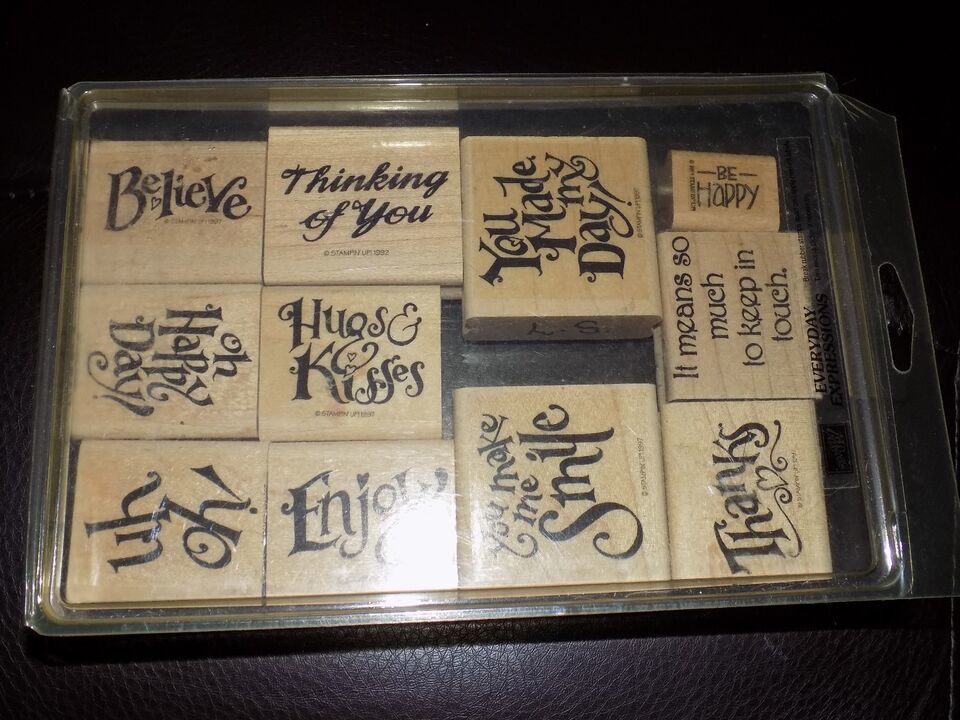 Believe
© STAMPIN' UP! 1997
Thinking
of You
© STAMPIN' UP! 1992
You
Made
my
Day!
© STAMPIN' UP! 1997
- BE -
HAPPY
It means so
much
to keep in
touch.
EVERYDAY
EXPRESSIONS
oh
Happy
Day!
Hugs &
Kisses
© STAMPIN' UP! 1997
L. S.
Enjoy
you make
me
Smile
© STAMPIN' UP! 1997
Thanks